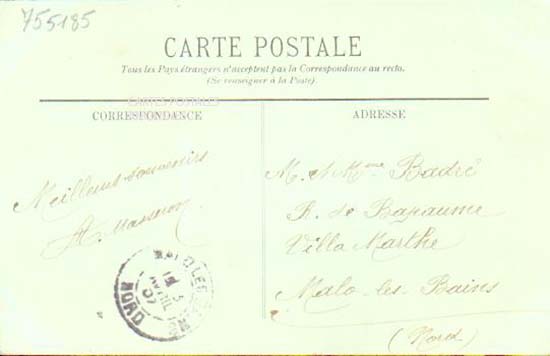 755185
CARTE POSTALE
Tous les Pays étrangers n'acceptent pas la Correspondance au recto.
(Se renseigner à la Poste).
CARTES POSTALES
CORRESPONDANCE
ADRESSE
Meilleurs souvenirs
M. & Mme Badré
R. de Bapaume
Villa Marthe
Malo-les-Bains
(Nord)
NORD